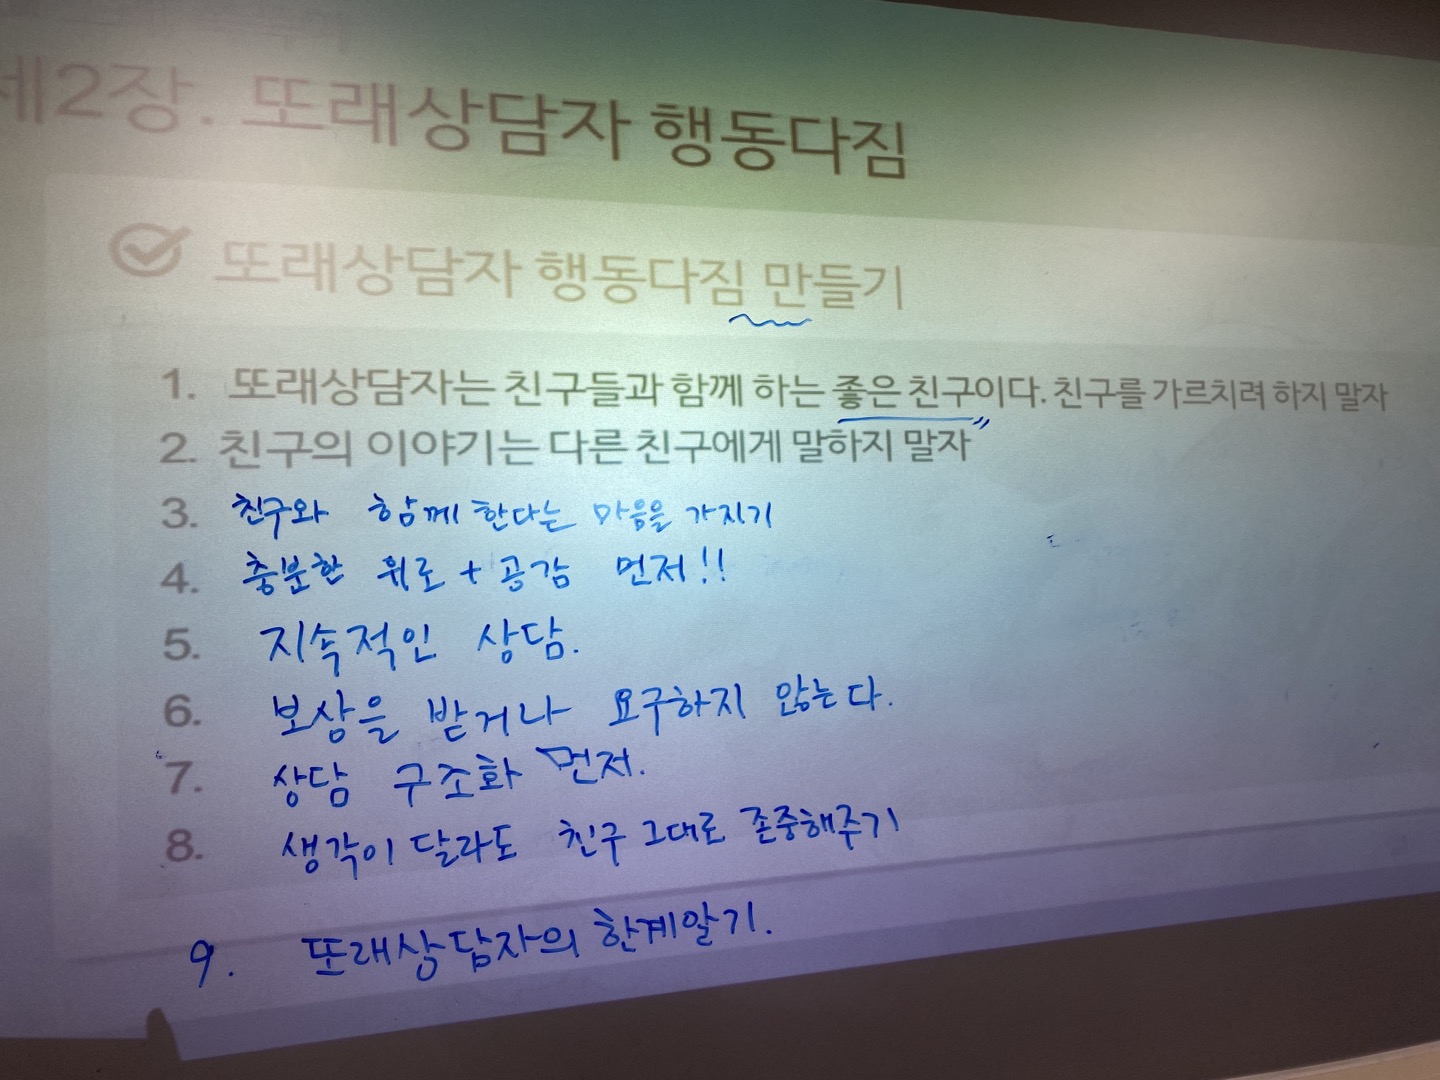 제2장. 또래상담자 행동다짐
또래상담자 행동다짐 만들기
1. 또래상담자는 친구들과 함께 하는 좋은 친구이다. 친구를 가르치려 하지 말자
2. 친구의 이야기는 다른 친구에게 말하지 말자
3. 친구와 함께 한다는 마음을 가지기
4. 충분한 위로 + 공감 먼저!!
5. 지속적인 상담.
6. 보상을 받거나 요구하지 않는다.
7. 상담 구조화 먼저.
8. 생각이 달라도 친구 그대로 존중해주기
9. 또래상담자의 한계알기.